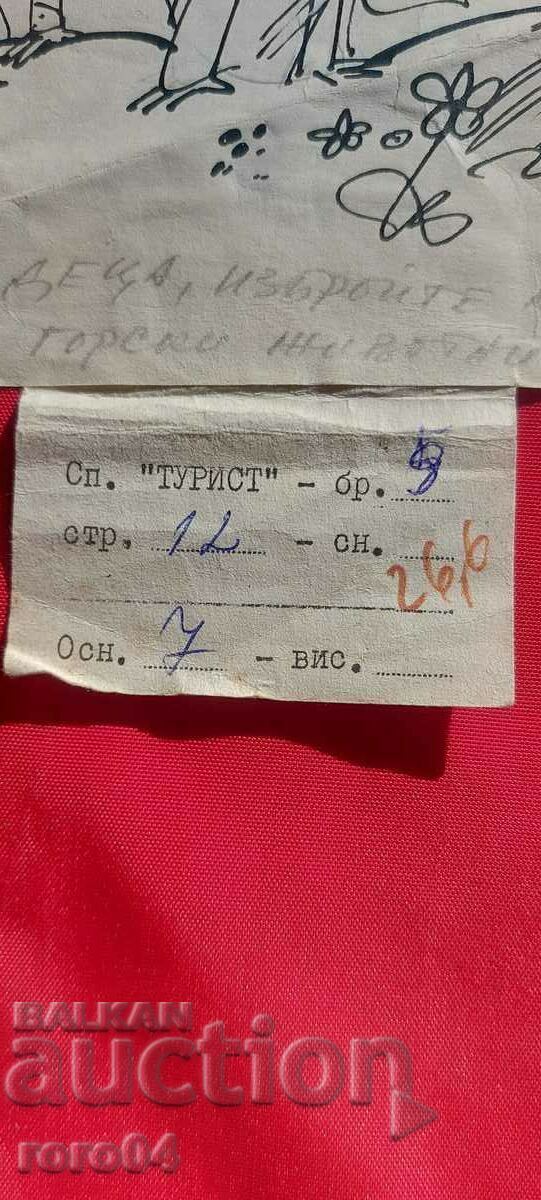 ДЕЦА, ИЗБРОЙТЕ
ГОРСКИ ЖИВОТНИ
Сп. "ТУРИСТ" - бр. 5
стр. 12 - сн.
26,6
Осн. 7 - вис.
BALKAN
auction
roro04